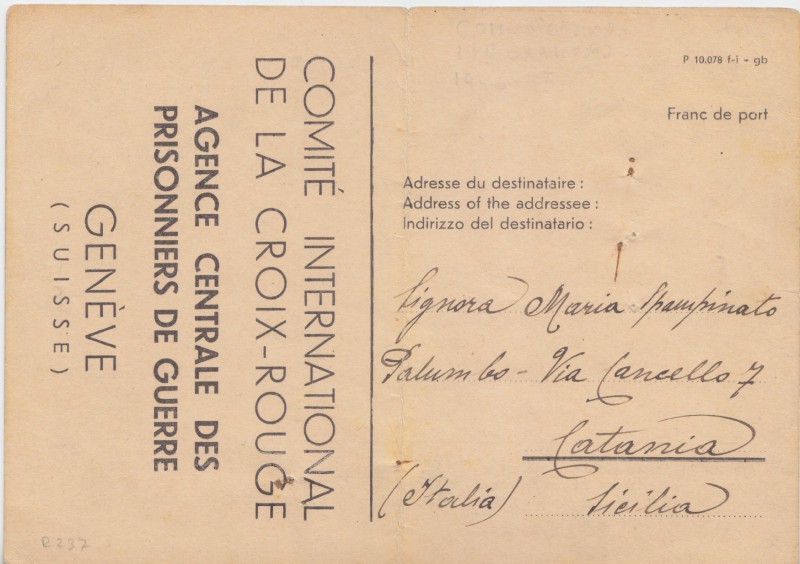 COMITÉ INTERNATIONAL
DE LA CROIX-ROUGE
AGENCE CENTRALE DES
PRISONNIERS DE GUERRE
GENÈVE
(SUISSE)
P 10.078 f-i - gb
Franc de port
Adresse du destinataire :
Address of the addressee :
Indirizzo del destinatario :
Signora Maria Spampinato
Palumbo - Via Cancello 7
Catania
(Italia) Sicilia
R237